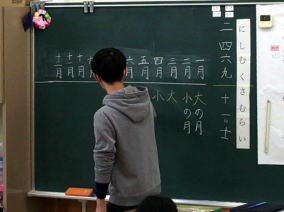 にしむくさむらい
二 四 六 九 十一 士
一月 大の月
二月 小の月
三月 大
四月 小
五月
六月
十月
十一月
十二月